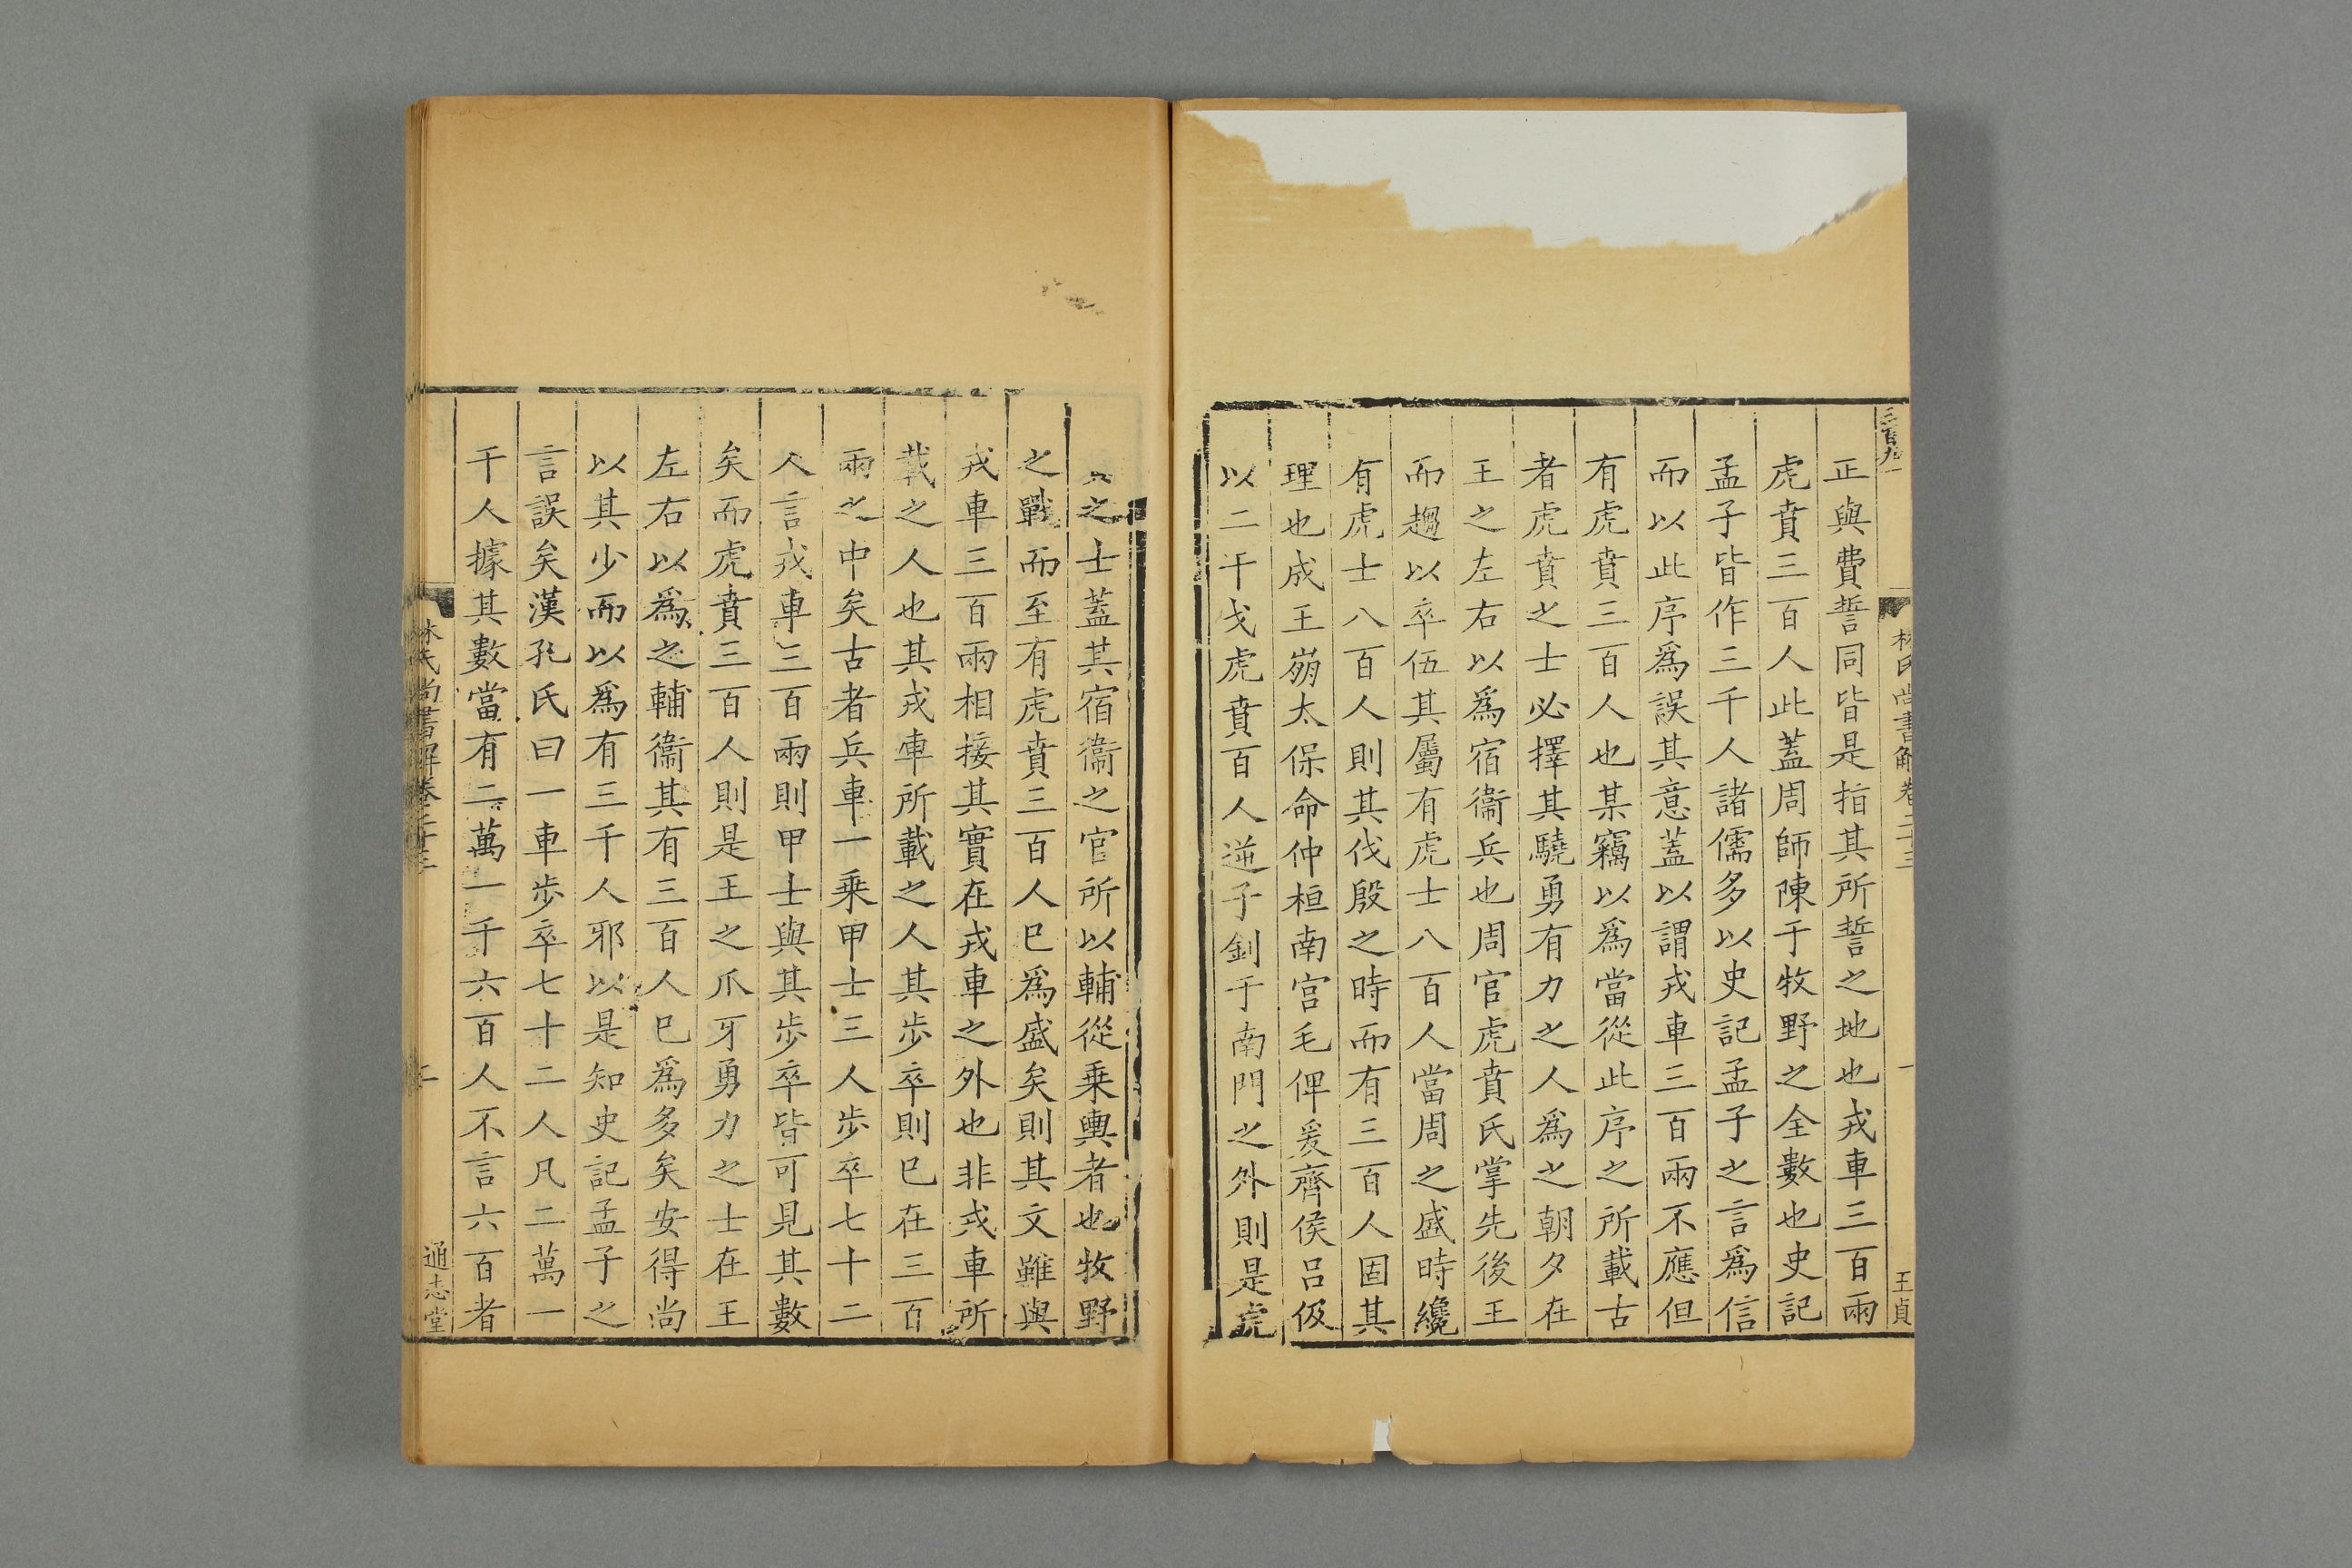 林氏尚書解卷二十三
一
王貞
正與費誓同皆是指其所誓之地也戎車三百兩
虎賁三百人此蓋周師陳于牧野之全數也史記
孟子皆作三千人諸儒多以史記孟子之言爲信
而以此序爲誤其意蓋以謂戎車三百兩不應但
有虎賁三百人也某竊以爲當從此序之所載古
者虎賁之士必擇其驍勇有力之人爲之朝夕在
王之左右以爲宿衞兵也周官虎賁氏掌先後王
而趨以卒伍其屬有虎士八百人當周之盛時纔
有虎士八百人則其伐殷之時而有三百人固其
理也成王崩太保命仲桓南宮毛俾爰齊侯呂伋
以二干戈虎賁百人逆子釗于南門之外則是虎
之士蓋其宿衞之官所以輔從乗輿者也牧野
之戰而至有虎賁三百人巳爲盛矣則其文雖與
戎車三百兩相接其實在戎車之外也非戎車所
載之人也其戎車所載之人其步卒則巳在三百
兩之中矣古者兵車一乗甲士三人步卒七十二
人言戎車三百兩則甲士與其步卒皆可見其數
矣而虎賁三百人則是王之爪牙勇力之士在王
左右以爲之輔衞其有三百人巳爲多矣安得尚
以其少而以爲有三千人邪以是知史記孟子之
言誤矣漢孔氏曰一車步卒七十二人凡二萬一
千人據其數當有二萬一千六百人不言六百者
林氏尚書解卷二十三
通志堂